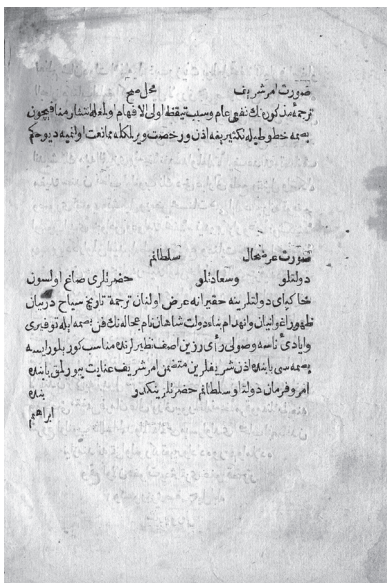 صورت امر شریف محل صح
ترجمهٔ مذکوره نك نفعی عام وسبب تیقظ اولی الافهام اولمغله انتشار منافعیچون
بصمه خطوطیله تکثیرینه اذن ورخصت ویرلمکله ممانعت اولنمیه دیو حکم
صورت عرضحال سلطانم
دولتلو وسعادتلو حضرتلری صاغ اولسون
خاکپای دولتلرینه حقیرانه عرض اولنان ترجمهٔ تاریخ سیاح دربیان
ظهور اغوانیان وانهدام بناء دولت شاهان نام عجاله نك فن بصمه ایله توفیری
وایادئ ناسه وصولی رأی رزین آصف نظیرلرنده مناسب کوریلورایسه
بصمه سی بابنده اذن شریفلرین متضمن امر شریف عنایت بیورلمق بابنده
امر وفرمان دولتلو سلطانم حضرتلرینکدر بنده
ابراهیم